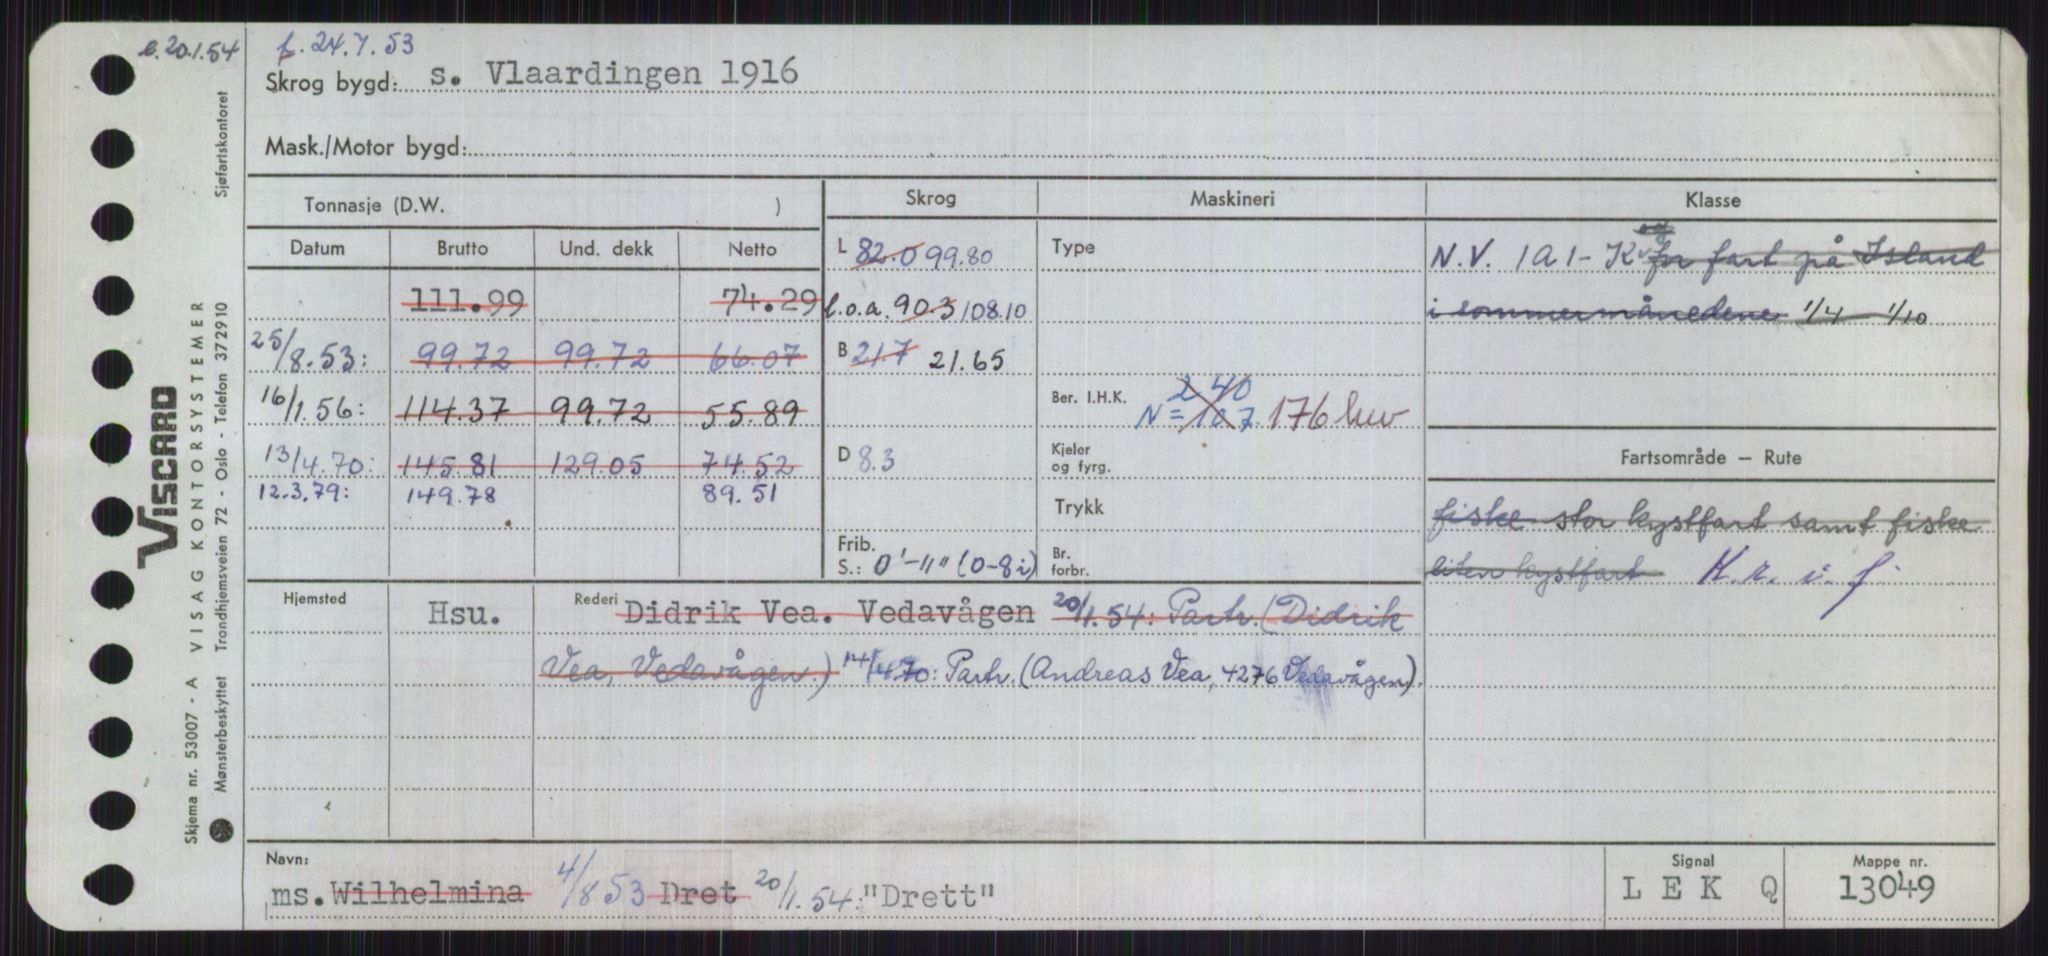 e. 20.1.54 f. 24.7.53
Skrog bygd: s. Vlaardingen 1916
Mask./Motor bygd:
Tonnasje (D.W. )
Datum Brutto Und. dekk Netto
111.99 74.29
25/8.53: 99.72 99.72 66.07
16/1.56: 114.37 99.72 55.89
13/4.70: 145.81 129.05 74.52
12.3.79: 149.78 89.51
Skrog
L 82.0 99.80
l.o.a. 90.3 108.10
B 21.7 21.65
D 8.3
Frib.
S.: 0'-11" (0-8i)
Maskineri
Type
Ber. I.H.K. 240
N = 107 176
Kjeler
og fyrg.
Trykk
Br.
forbr.
Klasse
N.V. 1A1-K for fart på Island
i sommermånedene 1/4 - 1/10
Fartsområde — Rute
fiske stor kystfart samt fiske
liten kystfart K.r. i. f.
Hjemsted Hsu. Rederi Didrik Vea. Vedavågen 20/1.54: Partr. (Didrik
Vea, Vedavågen.) 14/4.70: Partr. (Andreas Vea, 4276 Vedavågen).
Navn:
ms. Wilhelmina 4/8 53 Dret 20/1.54: "Drett"
Signal
L E K Q
Mappe nr.
13049
VISCARD
Skjema nr. 53007 - A VISAG KONTORSYSTEMER
Mønsterbeskyttet Trondhjemsveien 72 - Oslo - Telefon 372910 Sjøfartskontoret